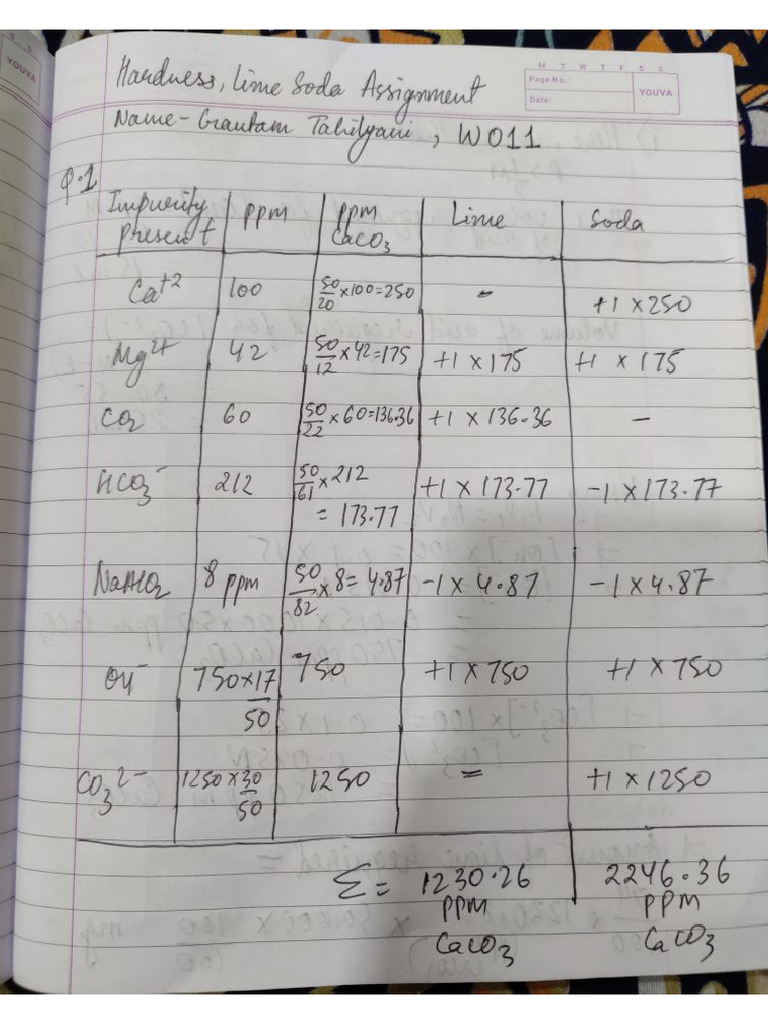 YOUVA
M T W T F S S
Page No.:
Date:
YOUVA
Hardness, Lime Soda Assignment
Name - Grautam Tahilyani, W011
Q.1
Impurity present | ppm | ppm CaCO3 | Lime | Soda
Ca+2 | 100 | 50/20 × 100 = 250 | - | +1 × 250
Mg2+ | 42 | 50/12 × 42 = 175 | +1 × 175 | +1 × 175
CO2 | 60 | 50/22 × 60 = 136.36 | +1 × 136.36 | -
HCO3- | 212 | 50/61 × 212 = 173.77 | +1 × 173.77 | -1 × 173.77
NaAlO2 | 8 ppm | 50/82 × 8 = 4.87 | -1 × 4.87 | -1 × 4.87
OH- | 750 × 17/50 | 750 | +1 × 750 | +1 × 750
CO3 2- | 1250 × 30/50 | 1250 | = | +1 × 1250
Σ = 1230.26 ppm CaCO3 | 2246.36 ppm CaCO3